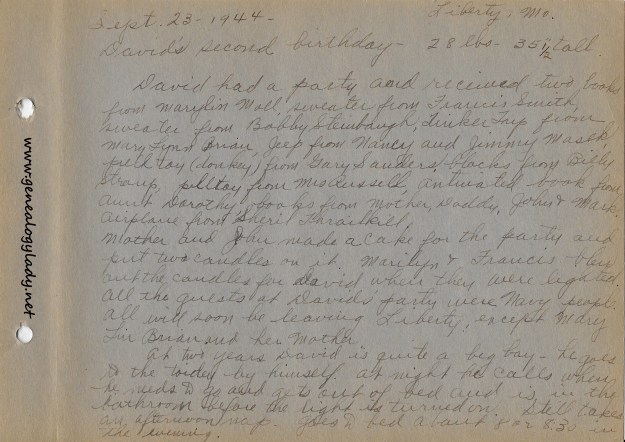 Sept. 23 - 1944 - Liberty, Mo.
David's second birthday - 28 lbs - 35 1/2" tall.
David had a party and received two books
from Marylin Moll, sweater from Francis Smith,
sweater from Bobby Steinbaugh, Tinker Toys from
Mary Lynn Brian, Jeep from Nancy and Jimmy Mask,
pull toy (donkey) from Gary Sanders, blocks from Billy
pull toy from Mrs Russell, animated book from
Aunt Dorothy, books from Mother, Daddy, John & Mark.
Airplane from Sheri
Mother and John made a cake for the party and
put two candles on it. Marilyn & Francis blew
out the candles for David when they were lighted.
All the guests at David's party were Navy people.
All will soon be leaving Liberty, except Mary
Lin Brian and her Mother.
At two years David is quite a big boy - he goes
to the toidey by himself. at night he calls when
he needs to go and gets out of bed and is in the
bathroom before the light is turned on. Still takes
an afternoon nap. Goes to bed about 8 or 8:30 in
the evening.
www.genealogylady.net